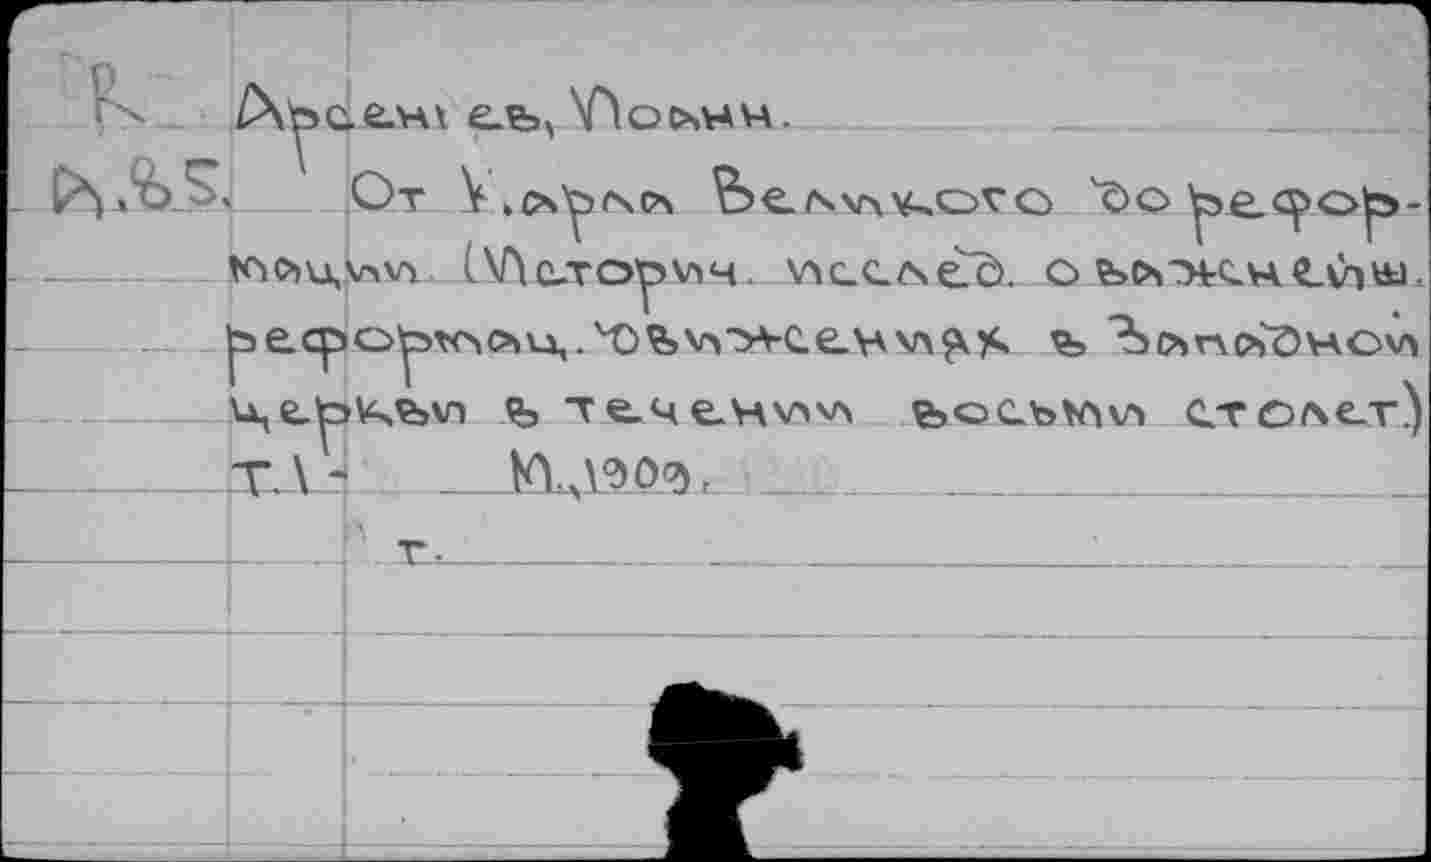 R
Арсеньев, Иоанн.
А.85. От Карла Великого до рефор-
мации (Историч. исслед. о важнейш.
реформац. движениях в Западной
церкви в течении восьми столет.)
т.1- М., 1909.
т.